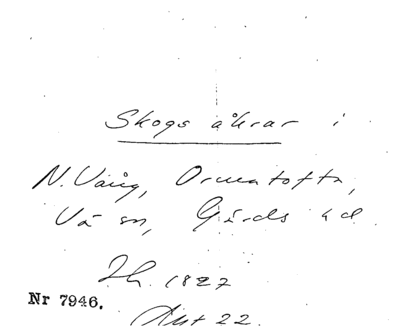 Skogs åkrar i
N. Vång, Ormatofta,
Vä sn, Gärds hd
Jh. 1827
Nr 7946.
Akt 22.